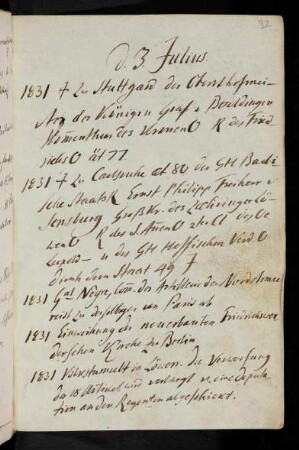 32
d. 3 Julius.
1831 † Zu Stuttgard der Obersthofmei-
ster der Königen Graf v Beroldingen
des Kronen O R des Fried
richs O ät 77
1831 † Zu Carlsruhe ät 80 der GH Badi
sche Staats R Ernst Philipp Freiherr v
Sensberg GroßKr. des Zähringer Lö
wen O R des St Annen O 2ter Cl des Leo
Leopold - u des GH Hessischen Verd O
diente dem Staat 49 J
1831 Gnl Neigre, Com. der Artillerie der Nordarmee
reist zu derselben von Paris ab
1831 Einweihung der neuerbauten Friedrichswer
derschen Kirche zu Berlin
1831 Volkstumult in Löwen. die Verwerfung
der 18 Artikel wird verlangt u eine Deputa
tion an den Regenten abgeschickt.